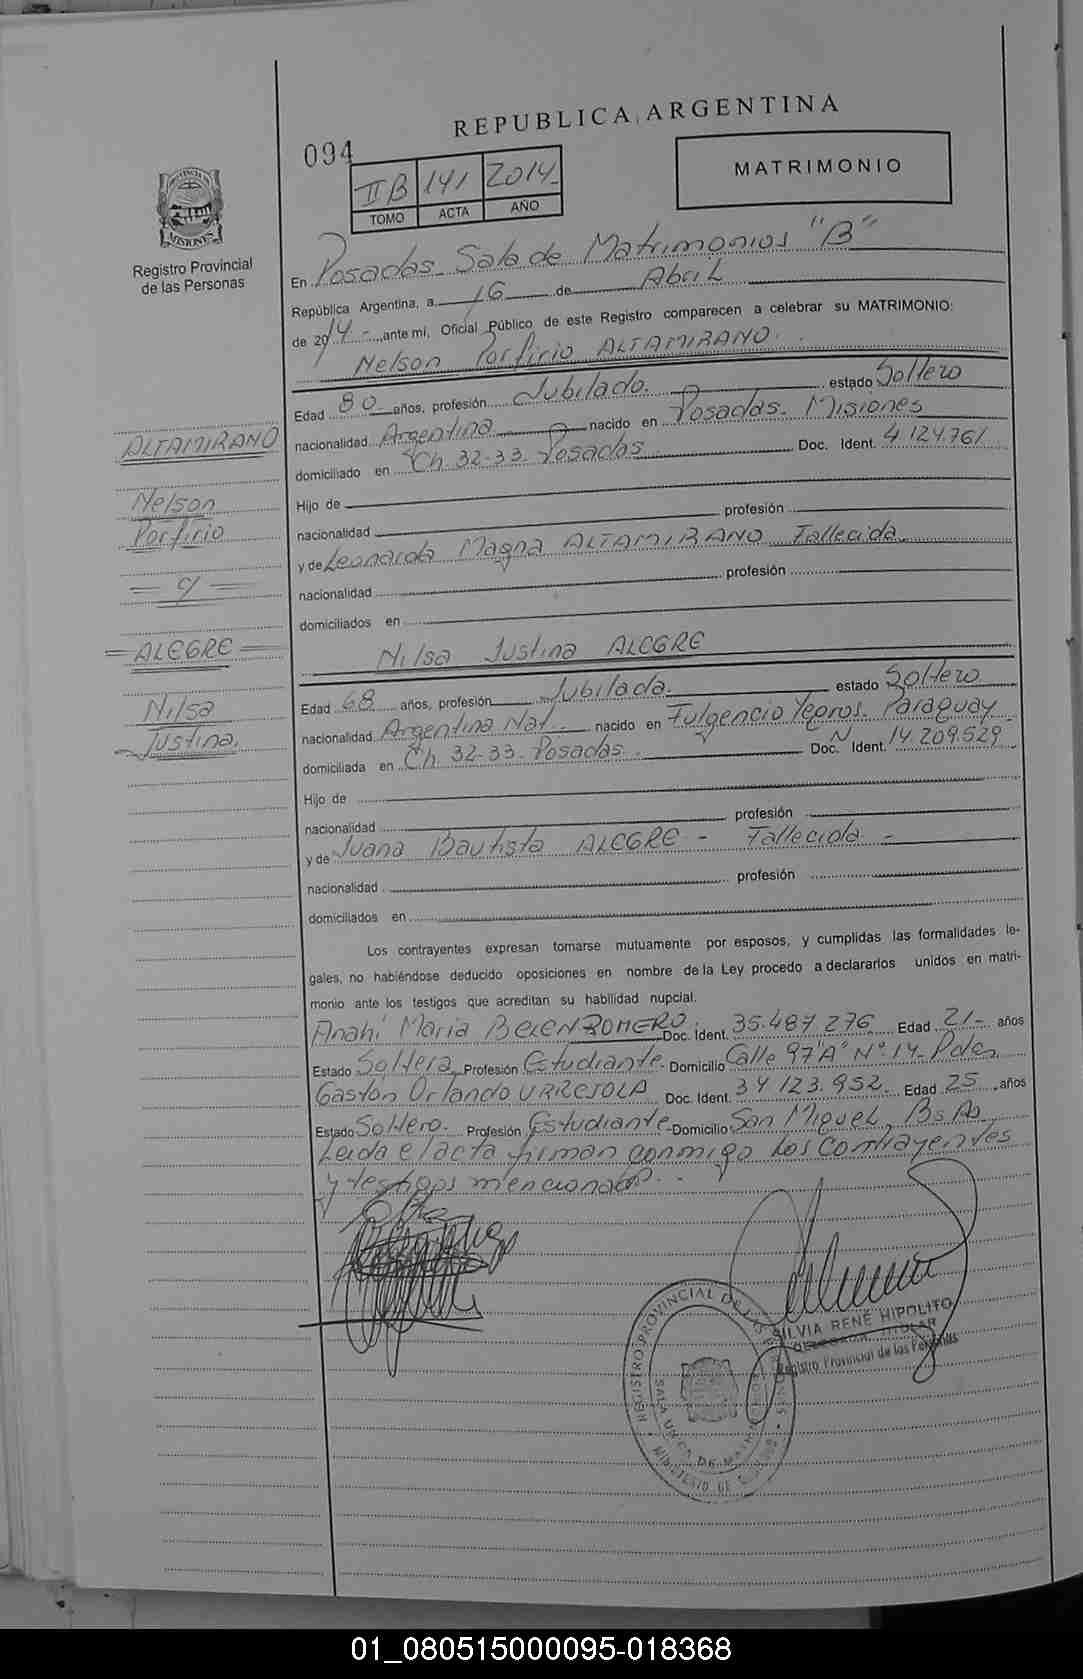 REPUBLICA ARGENTINA
094
IIB 141 2014
TOMO ACTA AÑO
MATRIMONIO
PROVINCIA DE
MISIONES
Registro Provincial
de las Personas
En Posadas Sala de Matrimonios "B"
República Argentina, a 16 de Abril
de 2014 - ante mi, Oficial Público de este Registro comparecen a celebrar su MATRIMONIO:
Nelson Porfirio ALTAMIRANO.
Edad 80 años, profesión Jubilado. estado Soltero
nacionalidad Argentina nacido en Posadas. Misiones
domiciliado en Ch 32-33. Posadas Doc. Ident. 4.124.761
Hijo de
nacionalidad profesión
y de Leonarda Magna ALTAMIRANO Fallecida
nacionalidad profesión
domiciliados en
Nilsa Justina ALEGRE
Edad 68 años, profesión Jubilada. estado Soltero
nacionalidad Argentina Nat. nacido en Fulgencio Yegros. Paraguay
domiciliada en Ch 32-33. Posadas Doc. N Ident. 14.209.529
Hijo de
nacionalidad profesión
y de Juana Bautista ALEGRE - Fallecida -
nacionalidad profesión
domiciliados en
ALTAMIRANO
Nelson
Porfirio
= c/ =
= ALEGRE =
Nilsa
Justina
Los contrayentes expresan tomarse mutuamente por esposos, y cumplidas las formalidades le-
gales, no habiéndose deducido oposiciones en nombre de la Ley procedo a declararlos unidos en matri-
monio ante los testigos que acreditan su habilidad nupcial.
Anahí Maria BELEN ROMERO Doc. Ident. 35.487.276 Edad 21- años
Estado Soltera Profesión Estudiante - Domicilio Calle 97 "A" Nº 14- Pdas
Gaston Orlando URREJOLA Doc. Ident. 34.123.952. Edad 25 años
Estado Soltero. Profesión Estudiante - Domicilio San Miguel, Bs As
Leida el acta firman conmigo los contrayentes
y testigos mencionados.
SILVIA RENÉ HIPOLITO
DELEGADA TITULAR
Registro Provincial de las Personas
REGISTRO PROVINCIAL DE LAS PERSONAS
MINISTERIO DE GOBIERNO
01_080515000095-018368